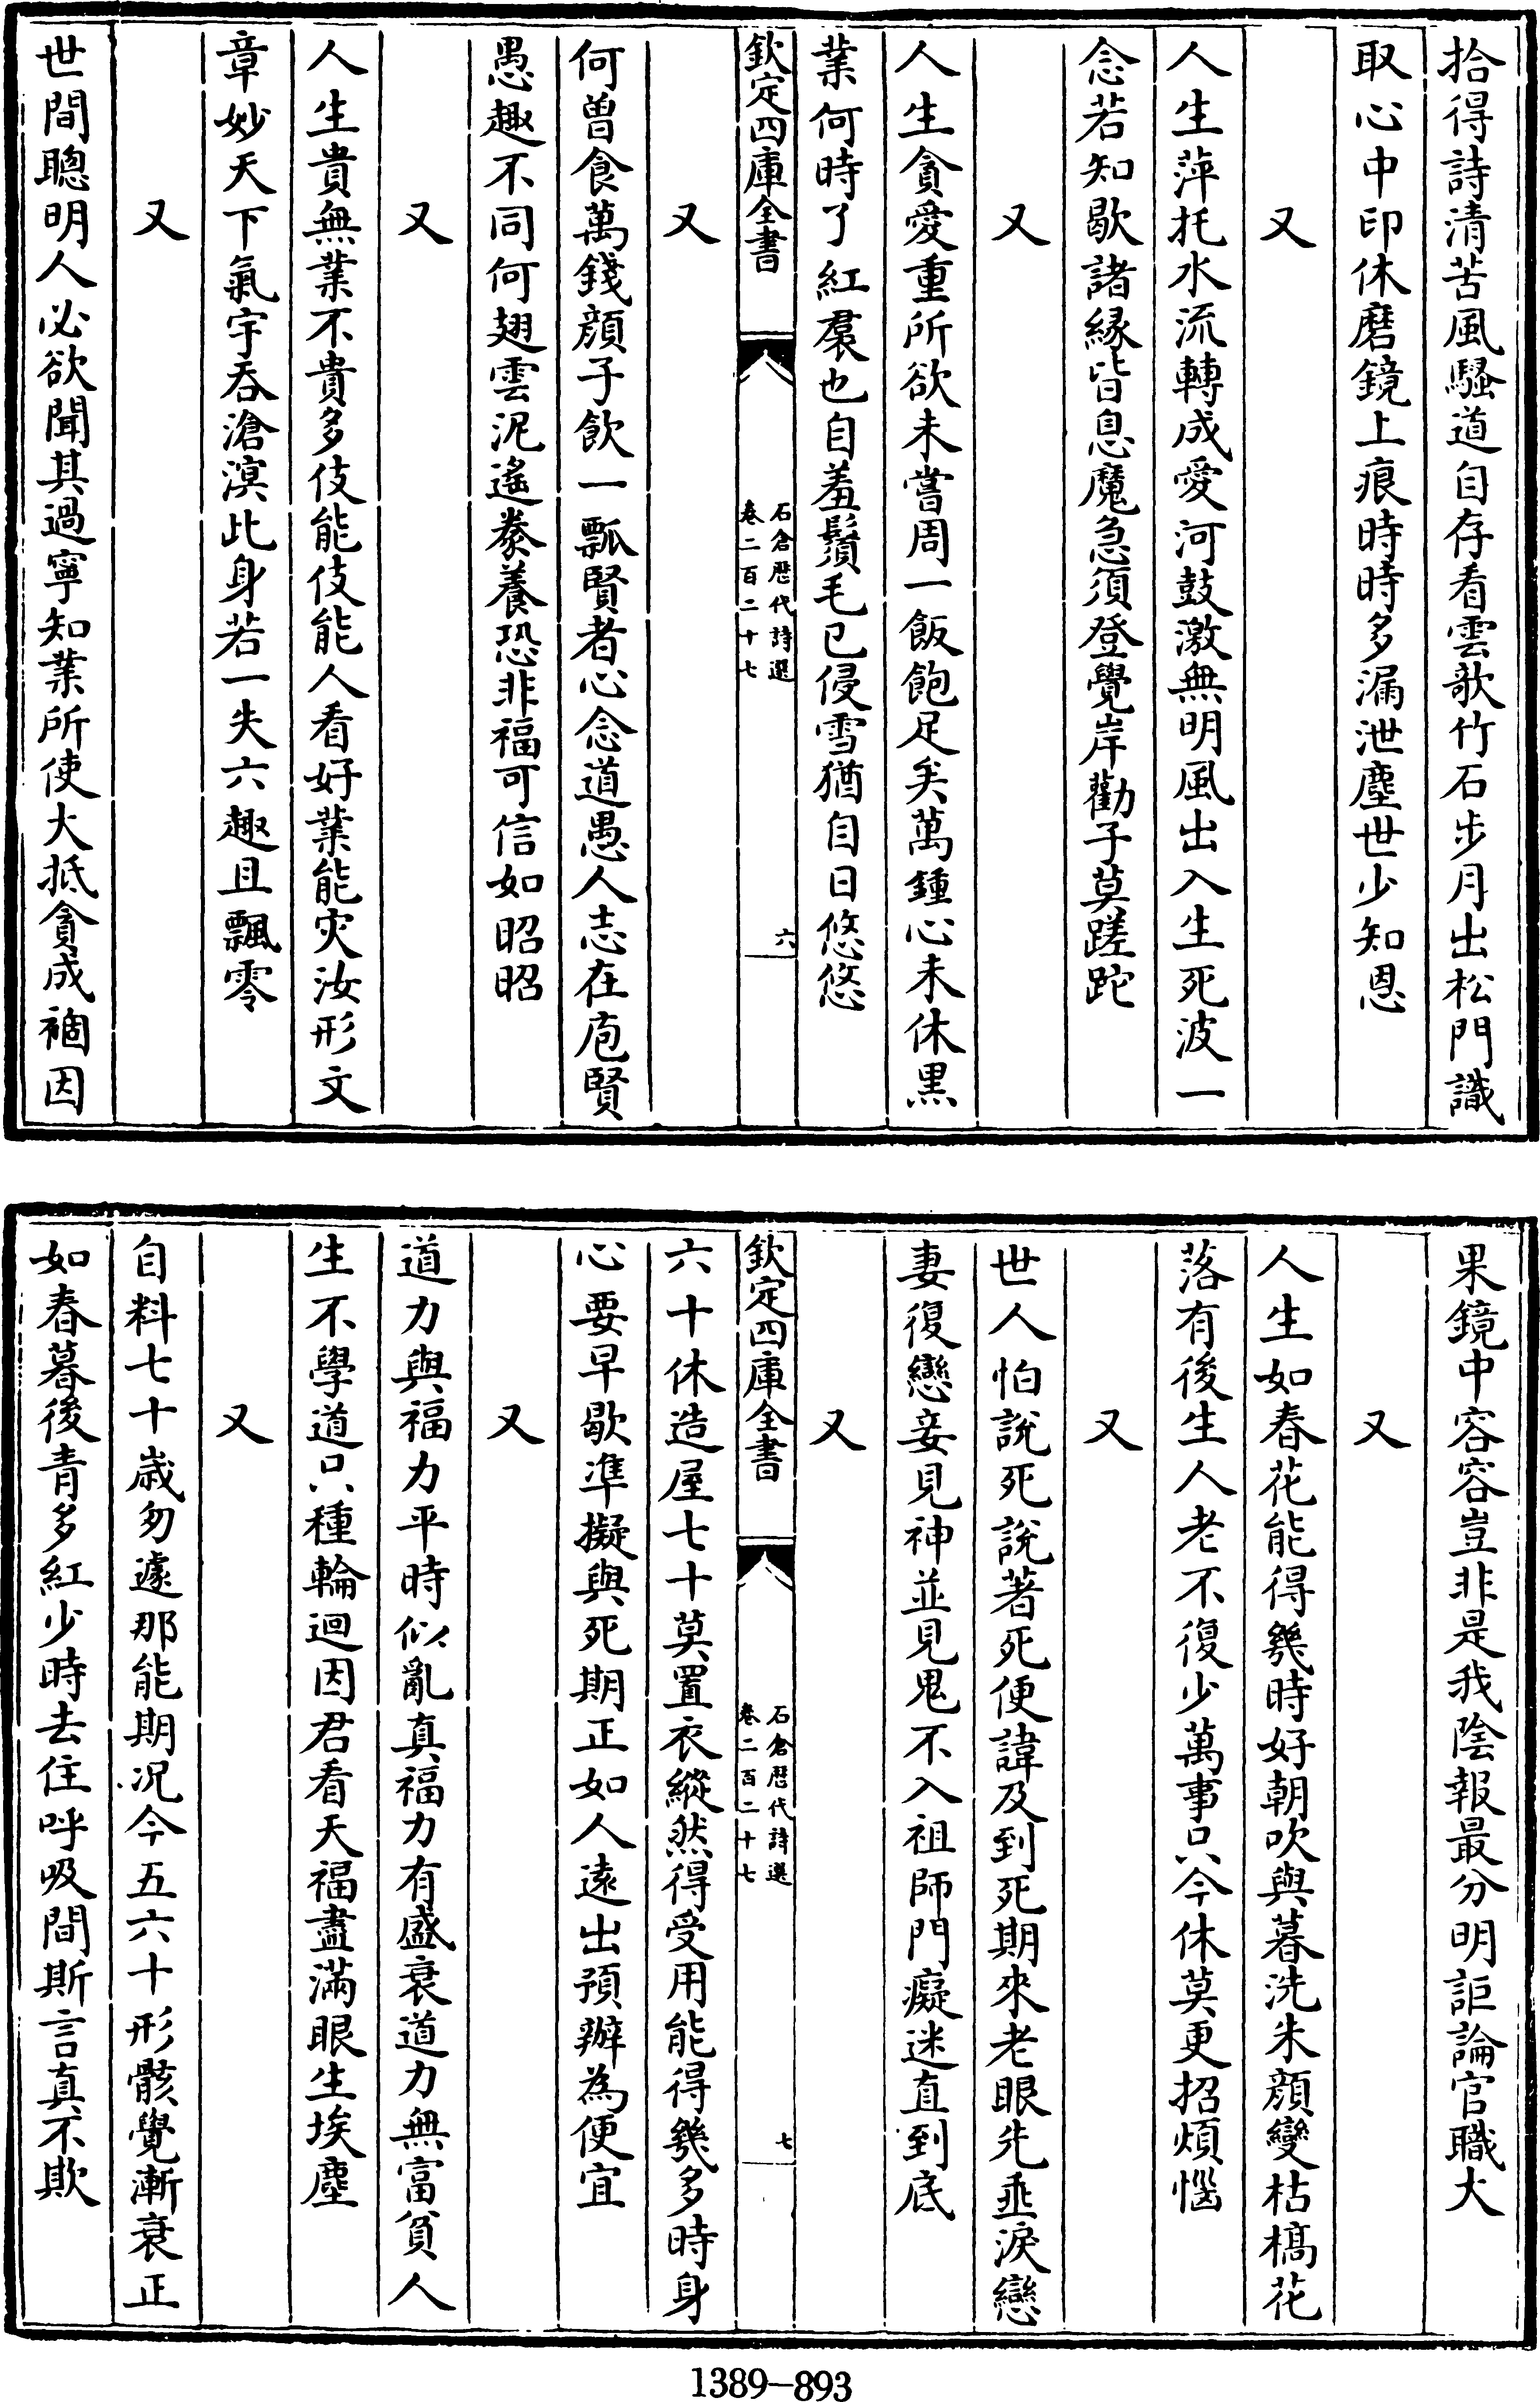 拾得詩清苦風騷道自存看雲歌竹石步月出松門識
取心中印休磨鏡上痕時時多漏泄塵世少知恩
又
人生萍托水流轉成愛河鼓激無明風出入生死波一
念若知歇諸緣皆息魔急須登覺岸勸子莫蹉跎
又
人生貪愛重所欲未嘗周一飯飽足矣萬鍾心未休黑
業何時了紅裠也自羞鬚毛已侵雪猶自日悠悠
欽定四庫全書
石倉歴代詩選
卷二百二十七
六
又
何曾食萬錢顔子飲一瓢賢者心念道愚人志在庖賢
愚趣不同何翅雲泥遙豢養恐非福可信如昭昭
又
人生貴無業不貴多伎能伎能人看好業能灾汝形文
章妙天下氣宇吞滄溟此身若一失六趣且飄零
又
世間聰明人必欲聞其過寧知業所使大抵貪成禍因
果鏡中容容豈非是我陰報最分明詎論官職大
又
人生如春花能得幾時好朝吹與暮洗朱顔變枯槁花
落有後生人老不復少萬事只今休莫更招煩惱
又
世人怕說死說著死便諱及到死期來老眼先垂淚戀
妻復戀妾見神並見鬼不入祖師門癡迷直到底
又
欽定四庫全書
石倉歴代詩選
卷二百二十七
七
六十休造屋七十莫置衣縱然得受用能得幾多時身
心要早歇凖擬與死期正如人遠出預辦為便宜
又
道力與福力平時似亂真福力有盛衰道力無富貧人
生不學道只種輪迴因君看天福盡滿眼生埃塵
又
自料七十歲匆遽那能期况今五六十形骸覺漸衰正
如春暮後青多紅少時去住呼吸間斯言真不欺
1389-893